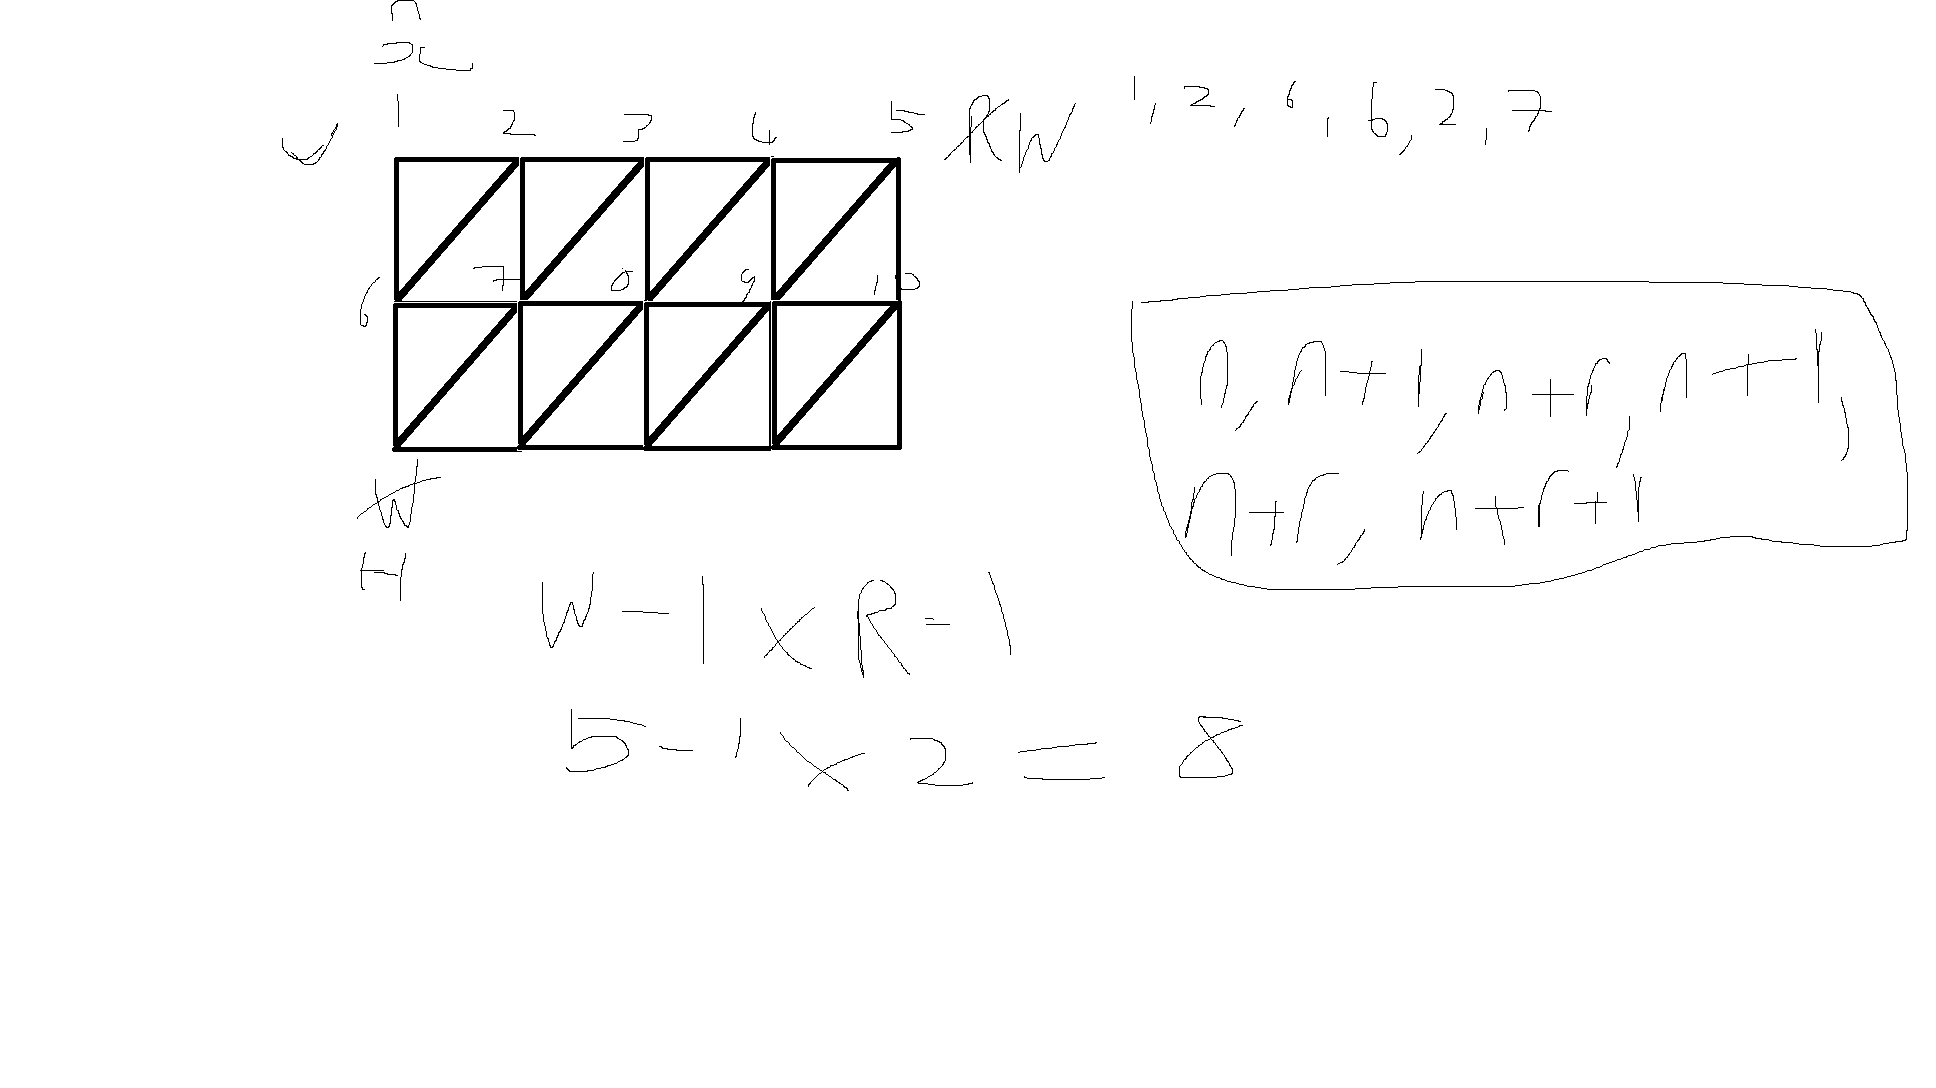 n
x
1 2 3 4 5 RW 1, 2, 6, 6, 2, 7
6 7 8 9 10
n, n+1, n+r, n+1,
n+r, n+r+1
W
H
W-1 x R-1
5-1 x 2 = 8